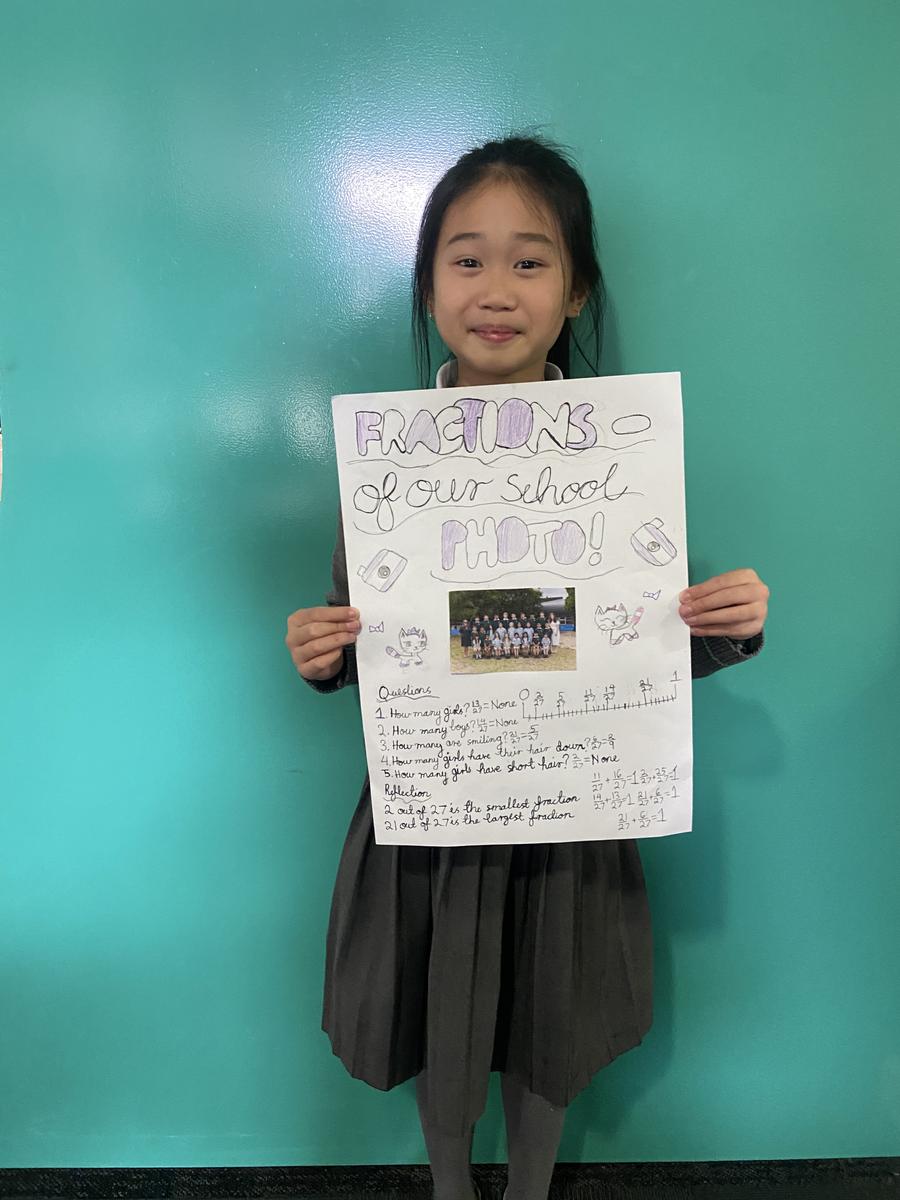 FRACTIONS -
of our school
PHOTO!
Questions
1. How many girls? 13/27 = None
2. How many boys? 14/27 = None
3. How many are smiling? 21/27 =
4. How many girls have their hair down? 6/27 = 2/9
5. How many girls have short hair? 2/27 = None
0 2/27 5/27 11/27 14/27 21/27 1
Reflection
2 out of 27 is the smallest fraction
21 out of 27 is the largest fraction
11/27 + 16/27 = 1 2/27 + 25/27 = 1
14/27 + 13/27 = 1 21/27 + 6/27 = 1
21/27 + 6/27 = 1